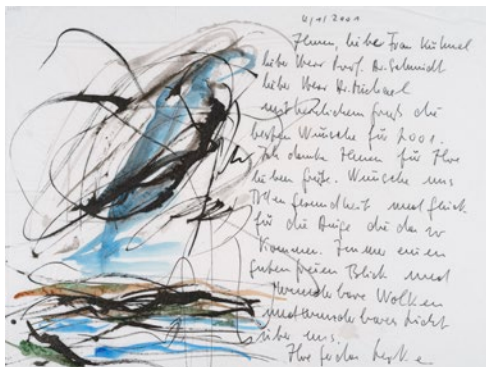 4/1/2001
Ihnen, liebe Frau Kühnel
lieber Herr Prof. Dr. Schmidt
lieber Herr Dr. Michael
mit herzlichem Gruß die
besten Wünsche für 2001.
Ich danke Ihnen für Ihre
lieben Grüße. Wünsche uns
Allen Gesundheit und Glück
für die Dinge die da zu
kommen. Immer einen
guten freien Blick und
wunderbare Wolken
und wunderbares Licht
über uns.
Ihre